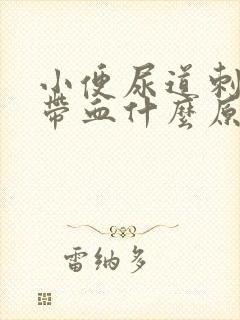 小便尿道刺
帶血什麼原
雷納多